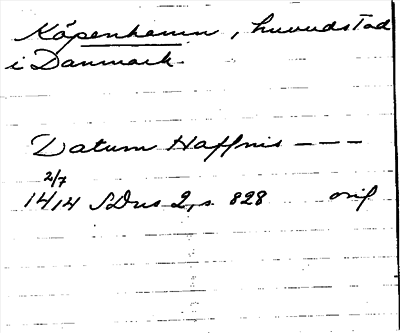 Köpenhamn, huvudstad
i Danmark.
Datum Haffnis - - -
2/7
14/14 SDns 2, s. 828 orig